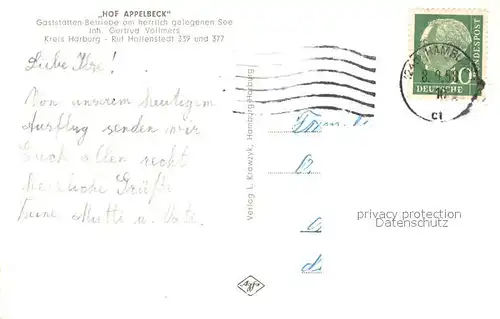 „HOF APPELBECK"
Gaststätten-Betriebe am herrlich gelegenen See
Inh. Gertrud Vollmers
Kreis Harburg - Ruf Hollenstedt 339 und 377
Liebe Ilse!
Von unserem heutigem
Ausflug senden wir
Euch allen recht
herzliche Grüße
Deine Mutti u. Vati.
Verlag L. Krawzyk, Hamburg-Harburg
Agfa
HAMBU
DEUTSCHE
BUNDESPOST
10
cl
privacy protection
Datenschutz